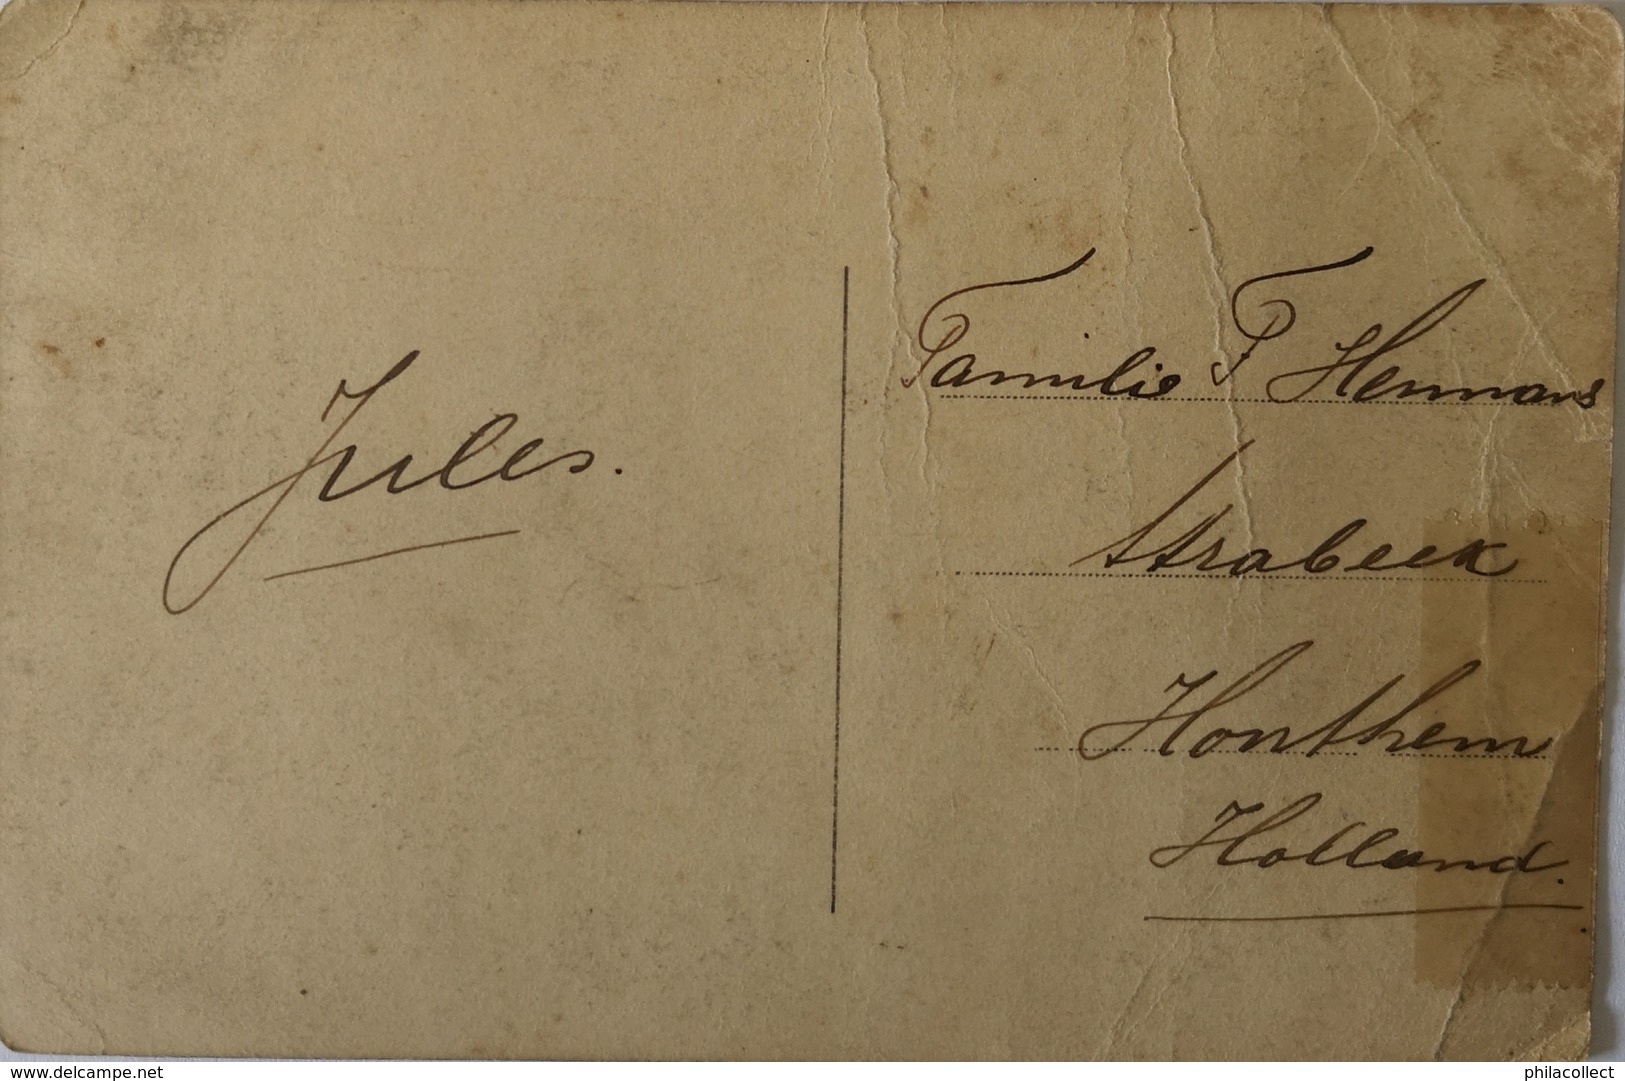 Jules.
Familie F Hermans
Strabeek
Houthem
Holland.
www.delcampe.net
philacollect